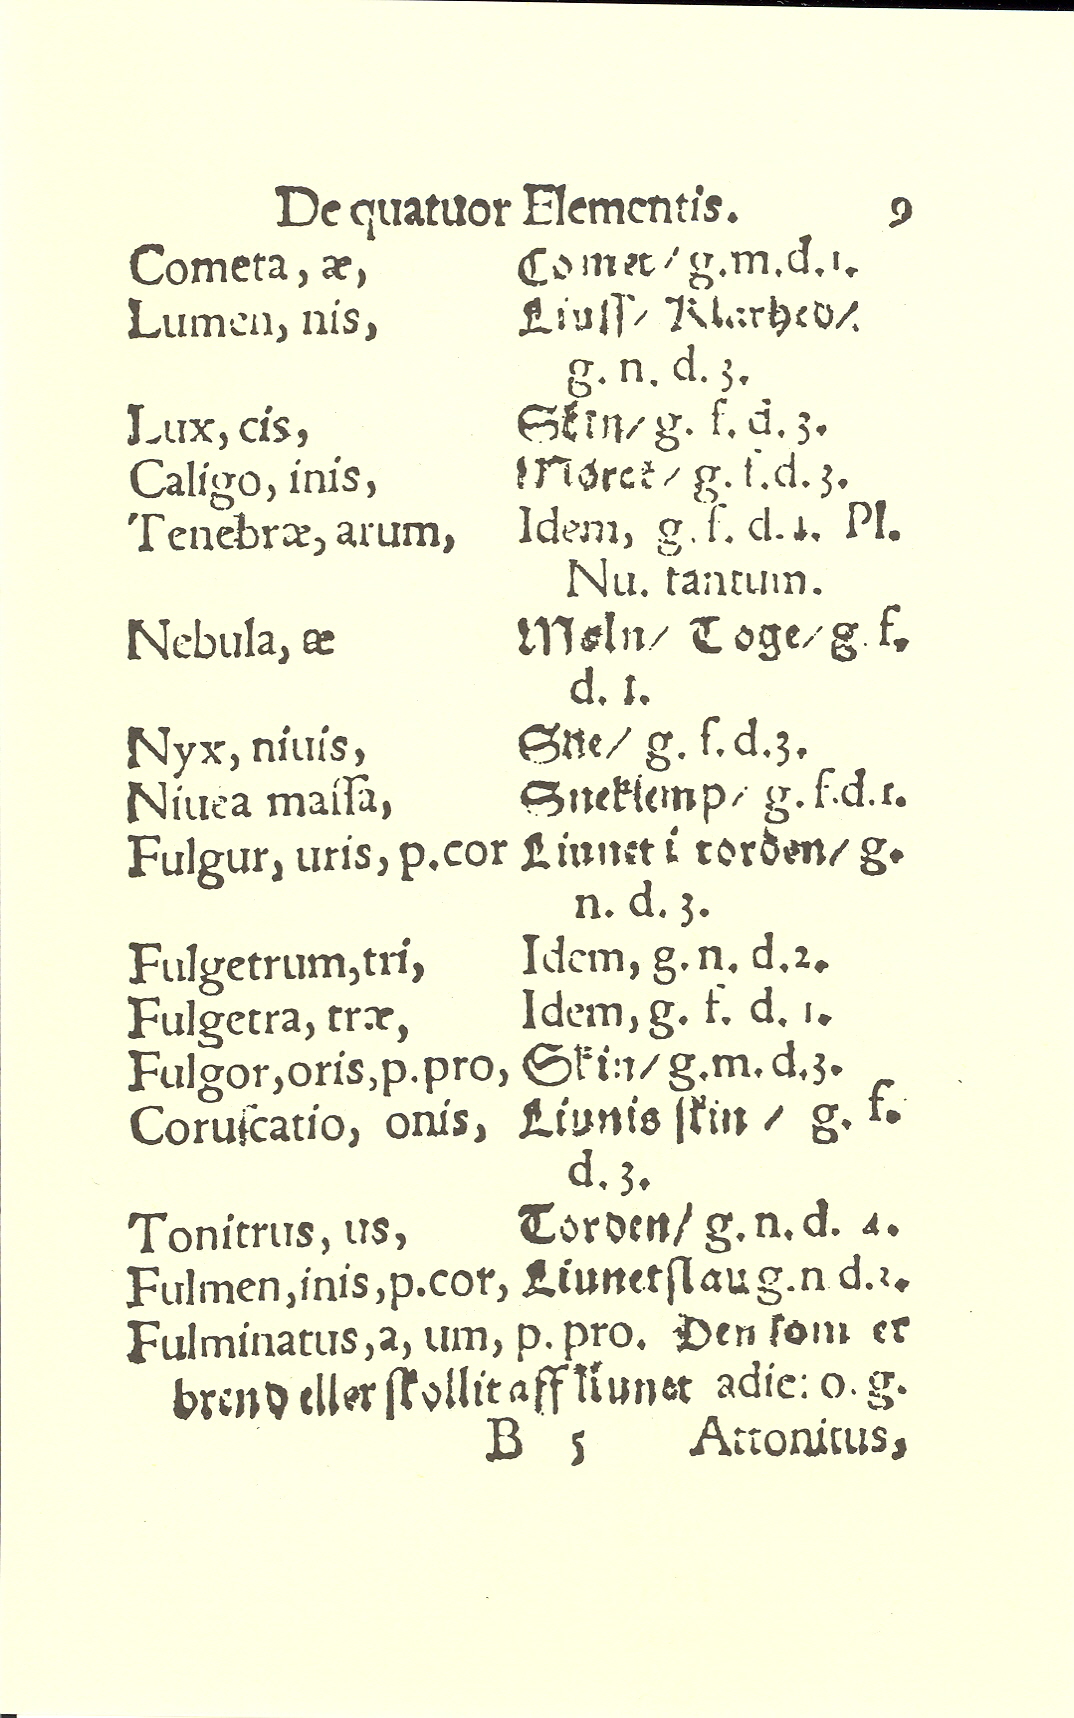 De quatuor Elementis. 9
Cometa, æ, Comet/ g.m.d.1.
Lumen, nis, Liuſſ/ Klarhed/
g. n. d. 3.
Lux, cis, Skin/ g. f. d. 3.
Caligo, inis, Mørct/ g. f.d. 3.
Tenebræ, arum, Idem, g. f. d. 1. Pl.
Nu. tantum.
Nebula, æ Moln/ Toge/ g. f.
d. 1.
Nyx, niuis, Sne/ g. f. d.3.
Niuea maſſa, Sneklemp/ g. f.d.1.
Fulgur, uris, p.cor Liunet i torden/ g.
n. d. 3.
Fulgetrum,tri, Idem, g. n. d.2.
Fulgetra, træ, Idem, g. f. d. 1.
Fulgor,oris,p.pro, Skin/ g.m. d.3.
Coruſcatio, onis, Liunis ſkin / g. f.
d. 3.
Tonitrus, us, Torden/ g. n. d. 4.
Fulmen,inis,p.cor, Liunetſlau g.n d.3.
Fulminatus,a, um, p. pro. Den ſom er
brend eller ſkollit aff liunet adie: o. g.
B 5 Attonitus,